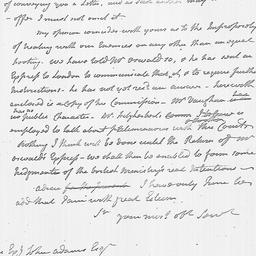 of conveying you a Letter, and as such
- offer I must not omit it -
my opinion coincides with yours as to the Impropriety
of treating with our Enemies on any other than an equal
footing. We have told Mr Oswald so, & he has sent an
Express to London to communicate that, & to require further
Instructions - he has not yet recd. an answer - herewith
enclosed is a Copy of his Commission. Mr Vaughan has
no public Character. Mr Fitzherbert
employed to talk about preliminaries with this Court
Nothing I think will be done until the Return of Mr
Oswald's Express - we shall then be enabled to form some
Judgmentes of the british Ministry's real Intentions -
adieu I have only Time to
add that I am with great Esteem
Sr your most obt Servt
Esqr John Adams Esqr